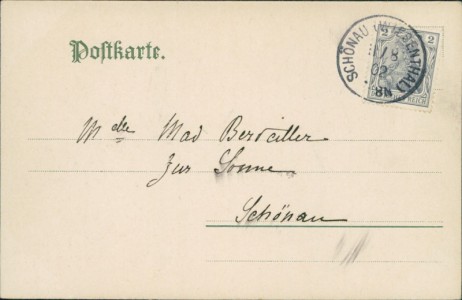 Postkarte.
SCHÖNAU (WIESENTHAL)
/8
02
8N
2 2
REICH
Mdlle Mad
Zur Sonne
Schönau